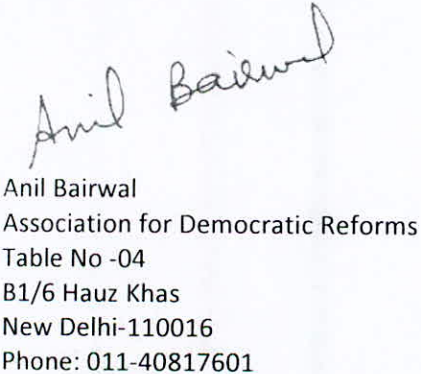 Anil Bairwal
Anil Bairwal
Association for Democratic Reforms
Table No -04
B1/6 Hauz Khas
New Delhi-110016
Phone: 011-40817601